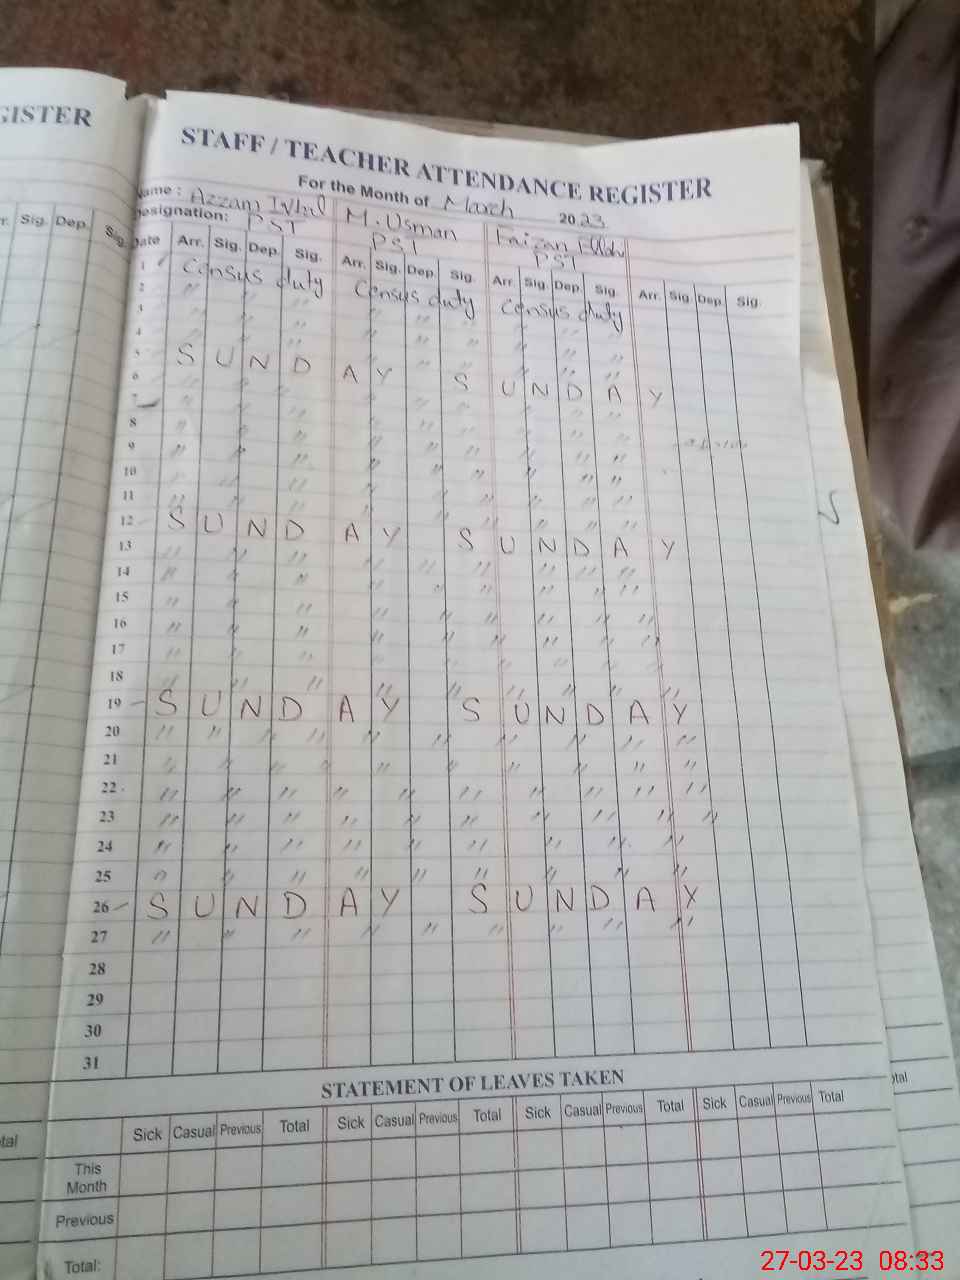 GISTER
STAFF / TEACHER ATTENDANCE REGISTER
For the Month of March 2023
Name : Azzam Iqbal M. Usman Faizan Ellahi
Designation: PST PST PST
r. Sig. Dep. Sig.
Date Arr. Sig. Dep. Sig. Arr. Sig. Dep. Sig. Arr. Sig. Dep. Sig. Arr. Sig. Dep. Sig.
1 Census duty Census duty Census duty
2 " " " " " " " " "
3 " " " " " " " " "
4 " " " " " " " " "
5 SUNDAY SUNDAY
6 " " " " " " " " "
7 " " " " " " " " "
8 " " " " " " " " "
9 " " " " " " " " "
10 " " " " " " " " "
11 " " " " " " " " "
12 SUNDAY SUNDAY
13 " " " " " " " " "
14 " " " " " " " " "
15 " " " " " " " " "
16 " " " " " " " " "
17 " " " " " " " " "
18 " " " " " " " " "
19 SUNDAY SUNDAY
20 " " " " " " " " " "
21 " " " " " " " " " "
22 " " " " " " " " " "
23 " " " " " " " " " "
24 " " " " " " " " "
25 " " " " " " " " "
26 SUNDAY SUNDAY
27 " " " " " " " " "
28
29
30
31
STATEMENT OF LEAVES TAKEN
Sick Casual Previous Total Sick Casual Previous Total Sick Casual Previous Total Sick Casual Previous Total
This Month
Previous
Total:
27-03-23 08:33